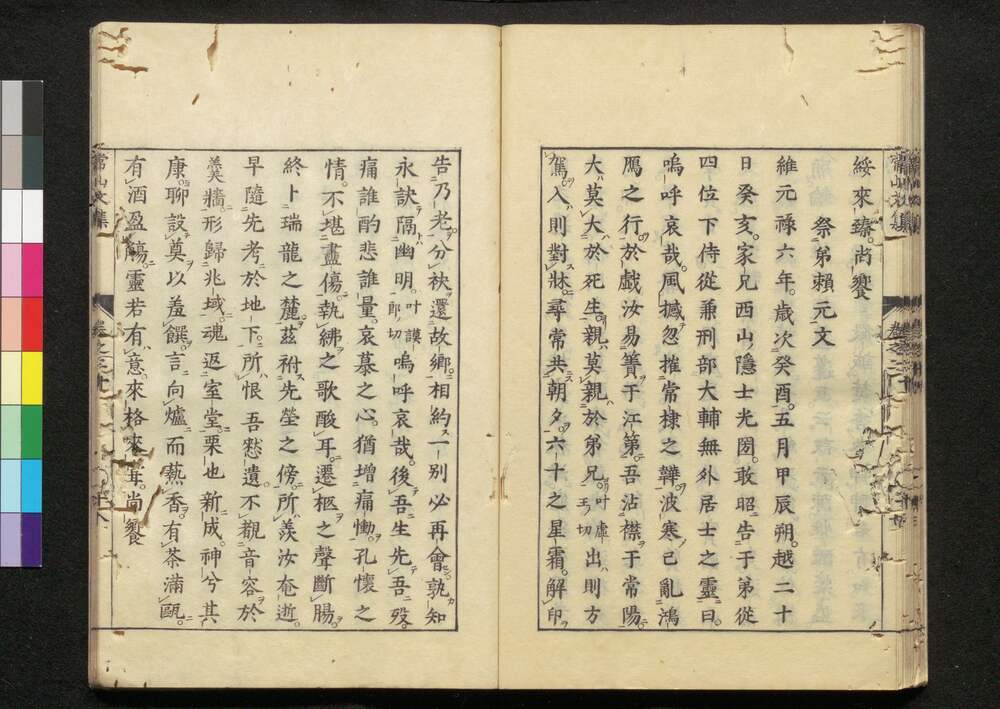 綏來臻尚饗
祭弟賴元文
維元祿六年歲次癸酉五月甲辰朔越二十
日癸亥家兄西山隱士光圀敢昭告于弟從
四位下侍從兼刑部大輔無外居士之靈曰
嗚呼哀哉風撼忽摧常棣之韡波寒已亂鴻
鴈之行於戲汝易簀于江第吾沾襟于常陽
大莫大於死生親莫親於弟兄叶虛王切出則方
駕入則對牀尋常共朝夕六十之星霜解印
告乃老分袂還故鄉相約一別必再會孰知
永訣隔幽明叶謨郎切嗚呼哀哉後吾生先吾歿
痛誰酌悲誰量哀慕之心猶增痛慟孔懷之
情不堪盡傷執紼之歌酸耳遷柩之聲斷腸
終卜瑞龍之麓茲祔先塋之傍所羨汝奄逝
早隨先考於地下所恨吾憗遺不觀音容於
羹牆形歸兆域魂返室堂栗也新成神兮其
康聊設奠以羞饌言向爐而爇香有茶滿甌
有酒盈觴靈若有意來格來享尚饗
常山文集
卷之二十